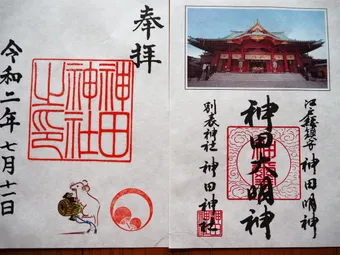 奉拝
神田神社之印
令和二年七月十二日
江戸総鎮守 神田明神
神田大明神
別表神社 神田神社